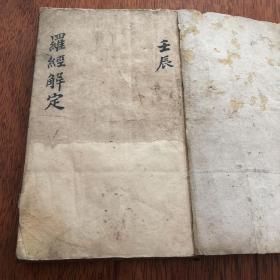 壬辰
羅經解定